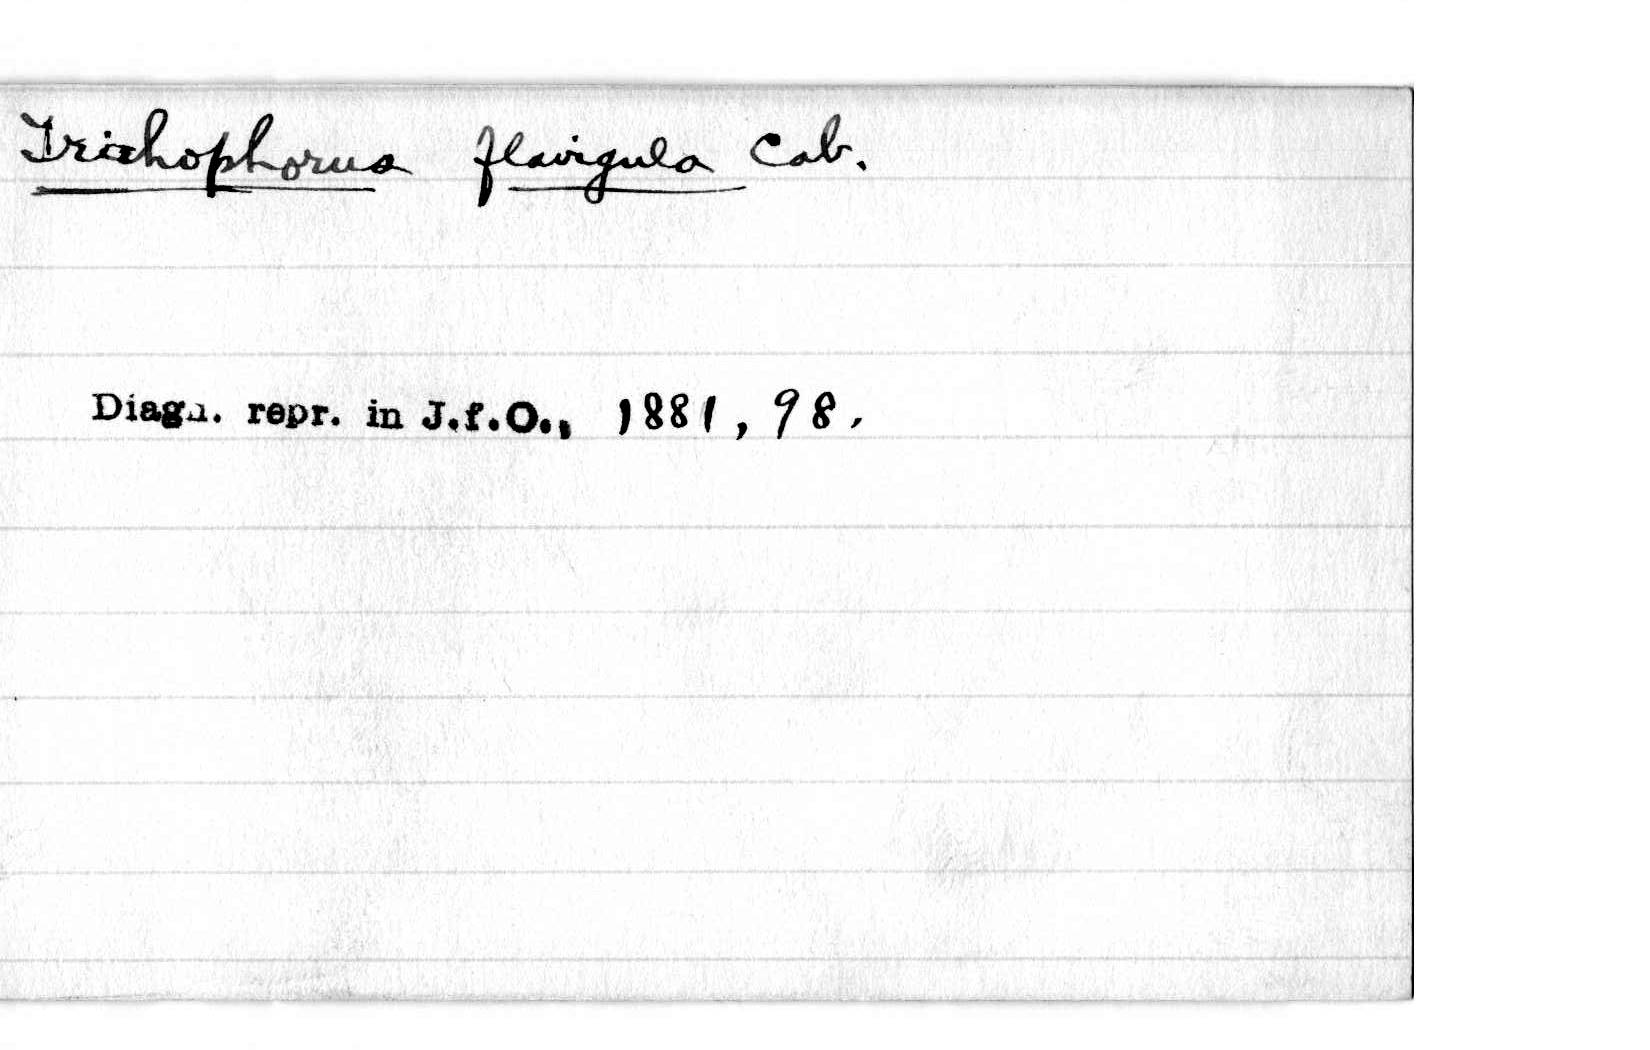 Trichophorus flavigula Cab.
Diagn. repr. in J.f.O., 1881, 98.